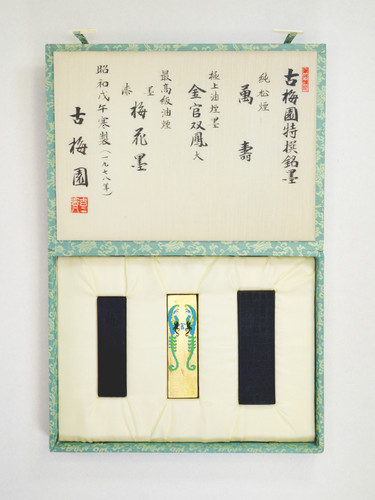 古梅園特撰銘墨
純松煙
萬壽
極上油煙墨
金官双鳳 大
最高級油煙
漆墨
梅花墨
昭和戊午寒製(一九七八年)
古梅園